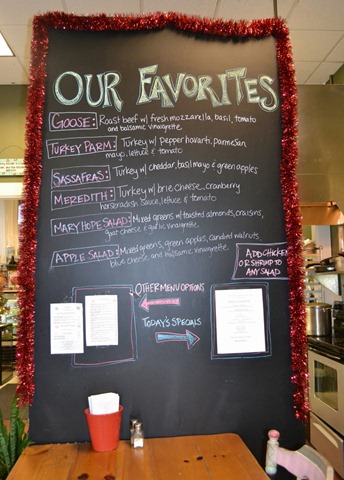 OUR FAVORITES
GOOSE: Roast beef w/ fresh mozzarella, basil, tomato
and balsamic vinaigrette
TURKEY PARM: Turkey w/ Pepper havarti, parmesan,
mayo, lettuce & tomato
SASSAFRAS: Turkey w/ cheddar, basil mayo & green apples
MEREDITH: Turkey w/ brie cheese, cranberry
horseradish sauce, lettuce & tomato
MARY HOPE SALAD: Mixed greens w/ toasted almonds, craisins,
goat cheese & garlic vinaigrette
APPLE SALAD: Mixed greens, green apples, candied walnuts,
blue cheese, and balsamic vinaigrette.
ADD CHICKEN
OR SHRIMP TO
ANY SALAD
OTHER MENU OPTIONS
TODAY'S SPECIALS